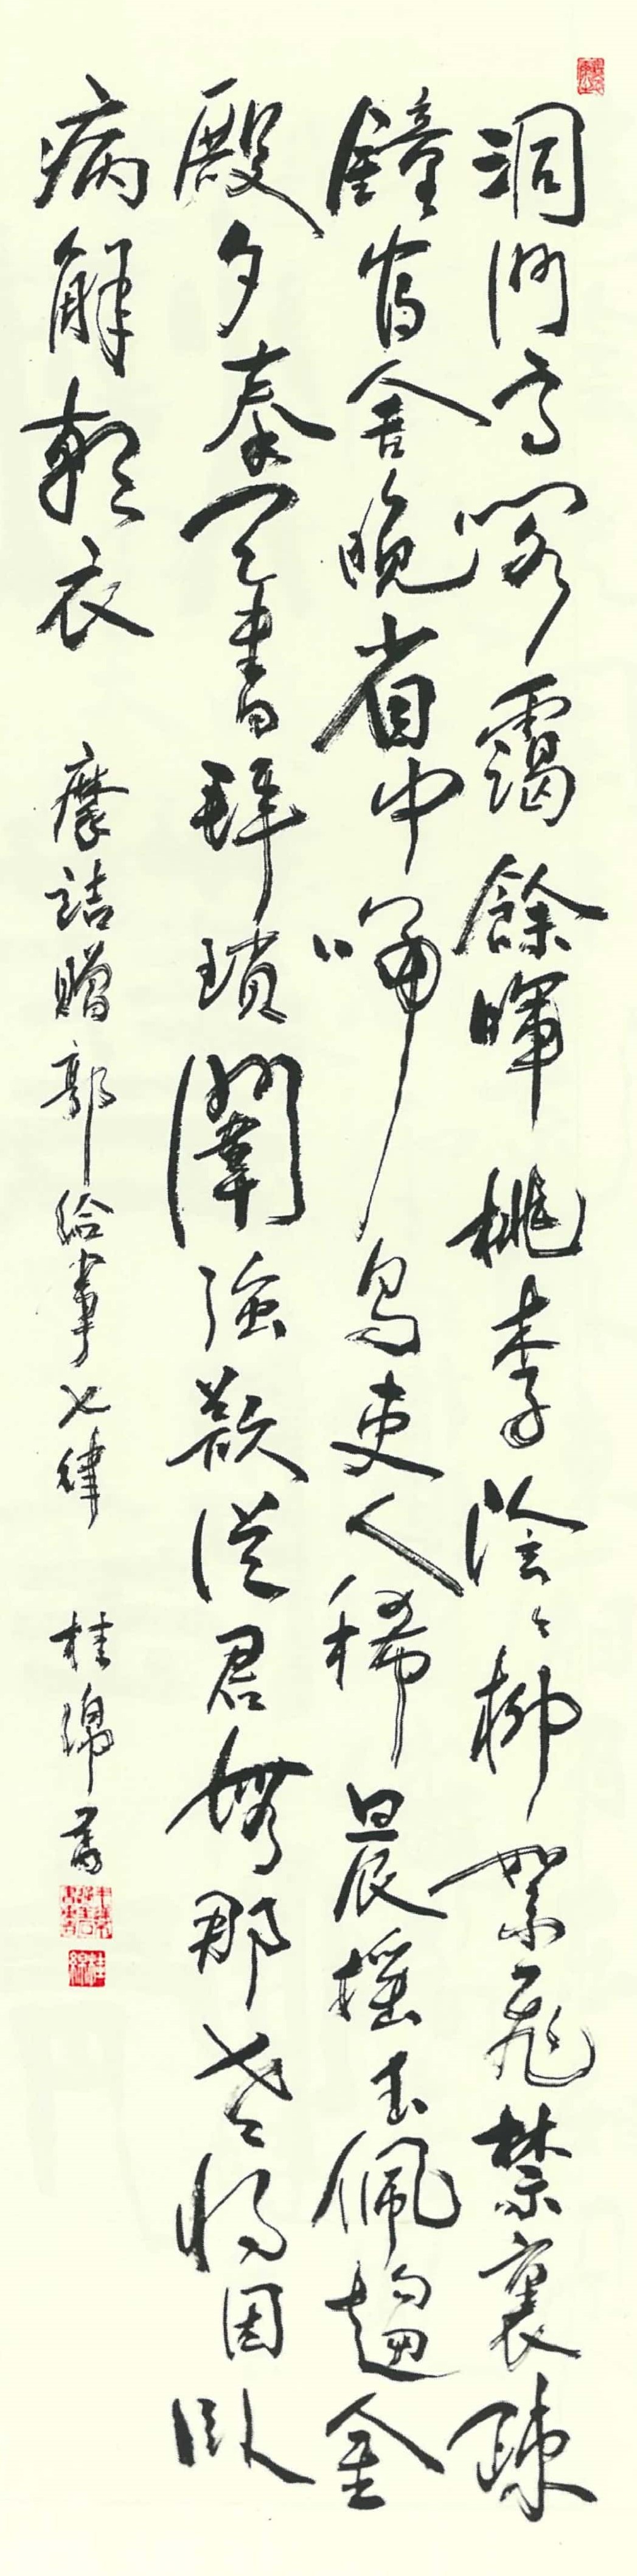 洞門高閣靄餘暉桃李陰々柳絮飛禁裏疎
鐘官舍晚省中啼鳥吏人稀晨搖玉佩趨金
殿夕奉天書拜瑣闈強欲從君無那老將因臥
病解朝衣
摩詰贈郭給事七律
桂綿書